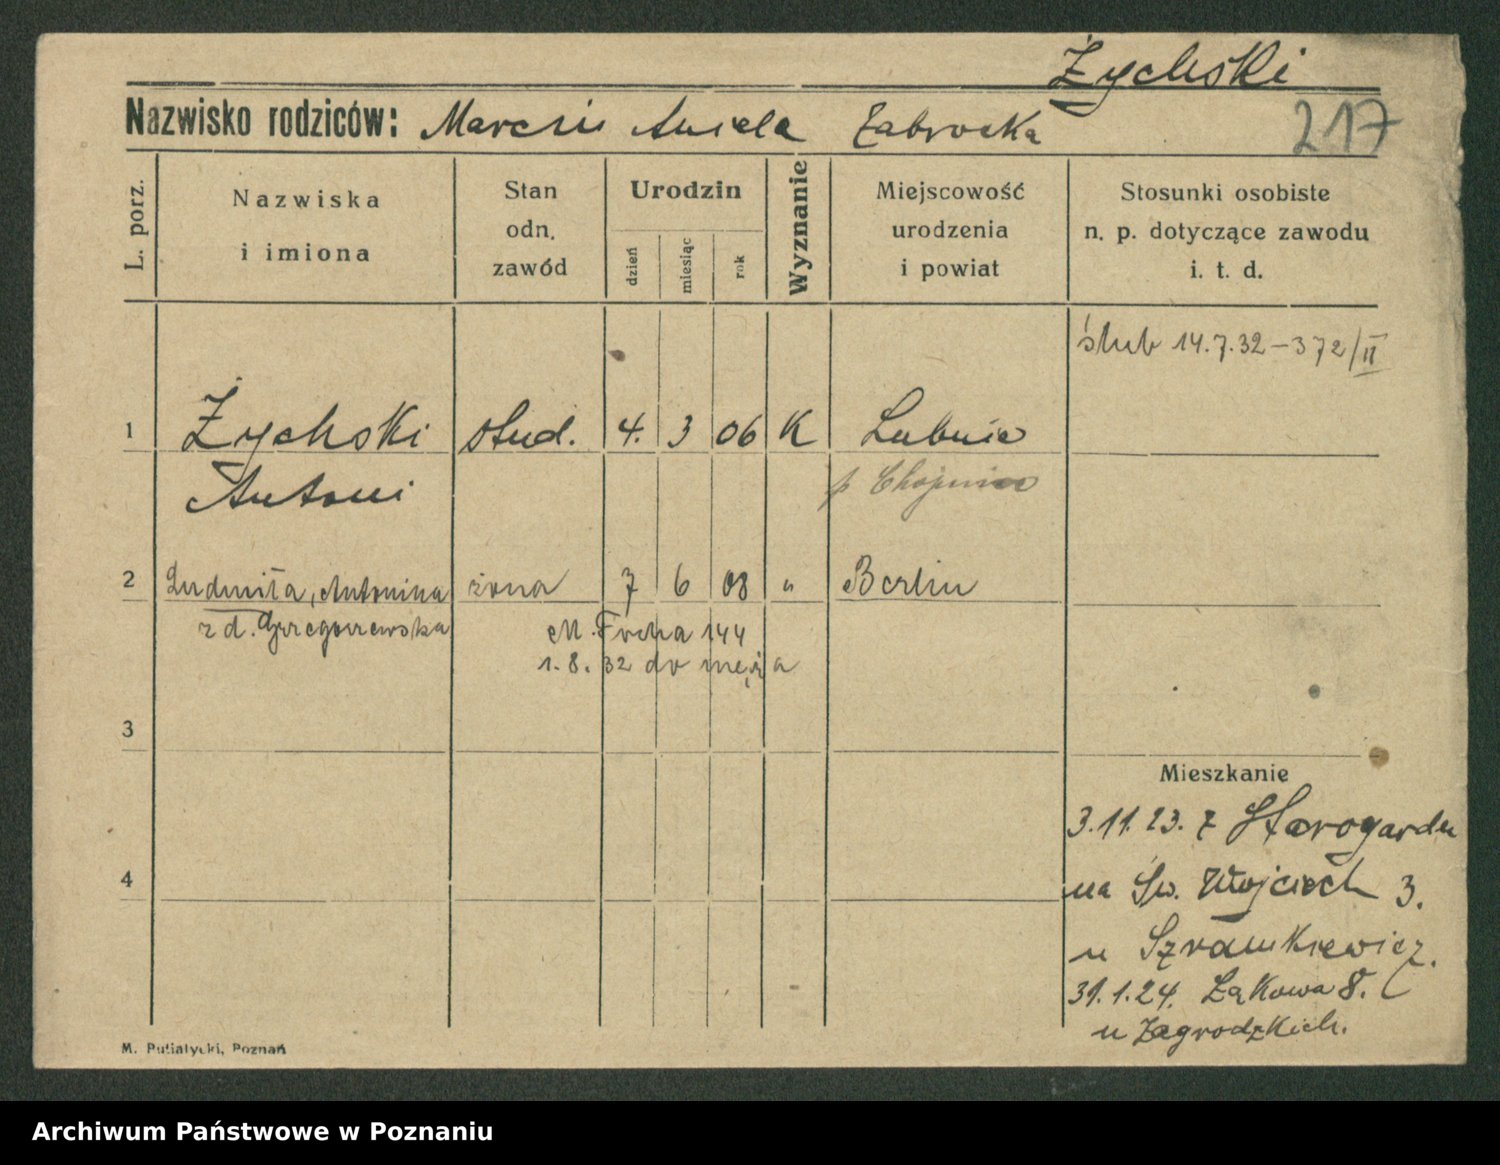 Żychski
Nazwisko rodziców: Marcin Aniela Zabrocka
217
L. porz.
Nazwiska
i imiona
Stan
odn.
zawód
Urodzin
dzień
miesiąc
rok
Wyznanie
Miejscowość
urodzenia
i powiat
Stosunki osobiste
n. p. dotyczące zawodu
i. t. d.
ślub 14.7.32 – 372/II
1 Żychski stud. 4. 3 06 K Lubnia
Antoni p Chojnice
2 Ludmiła, Antonina żona 7 6 08 " Berlin
z d. Grzegorzewska M. Focha 144
1. 8. 32 do męża
3
Mieszkanie
3.11.23. z Starogardu
4
na Św. Wojciech 3.
u Szramkiewicz.
31.1.24. Łąkowa 8.
u Zagrodzkich.
M. Putiatycki, Poznań
Archiwum Państwowe w Poznaniu